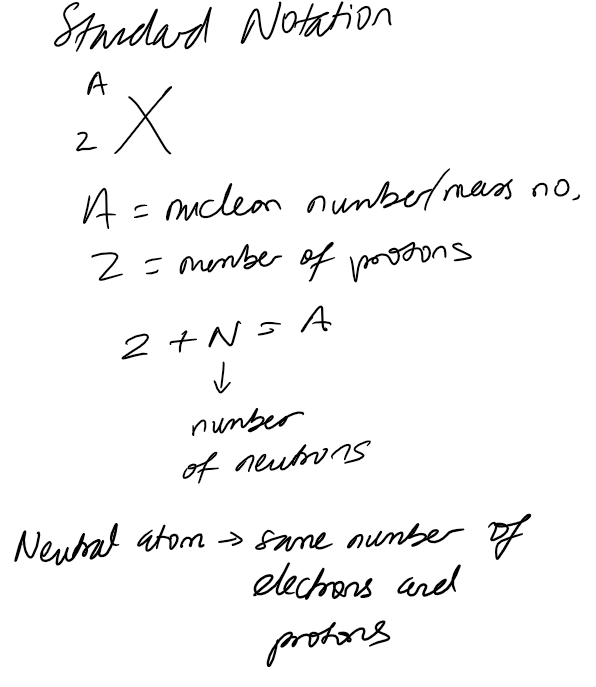 Standard Notation
A
Z X
A = nucleon number/mass no.
Z = number of protons
Z + N = A
↓
number
of neutrons
Neutral atom → same number of
electrons and
protons